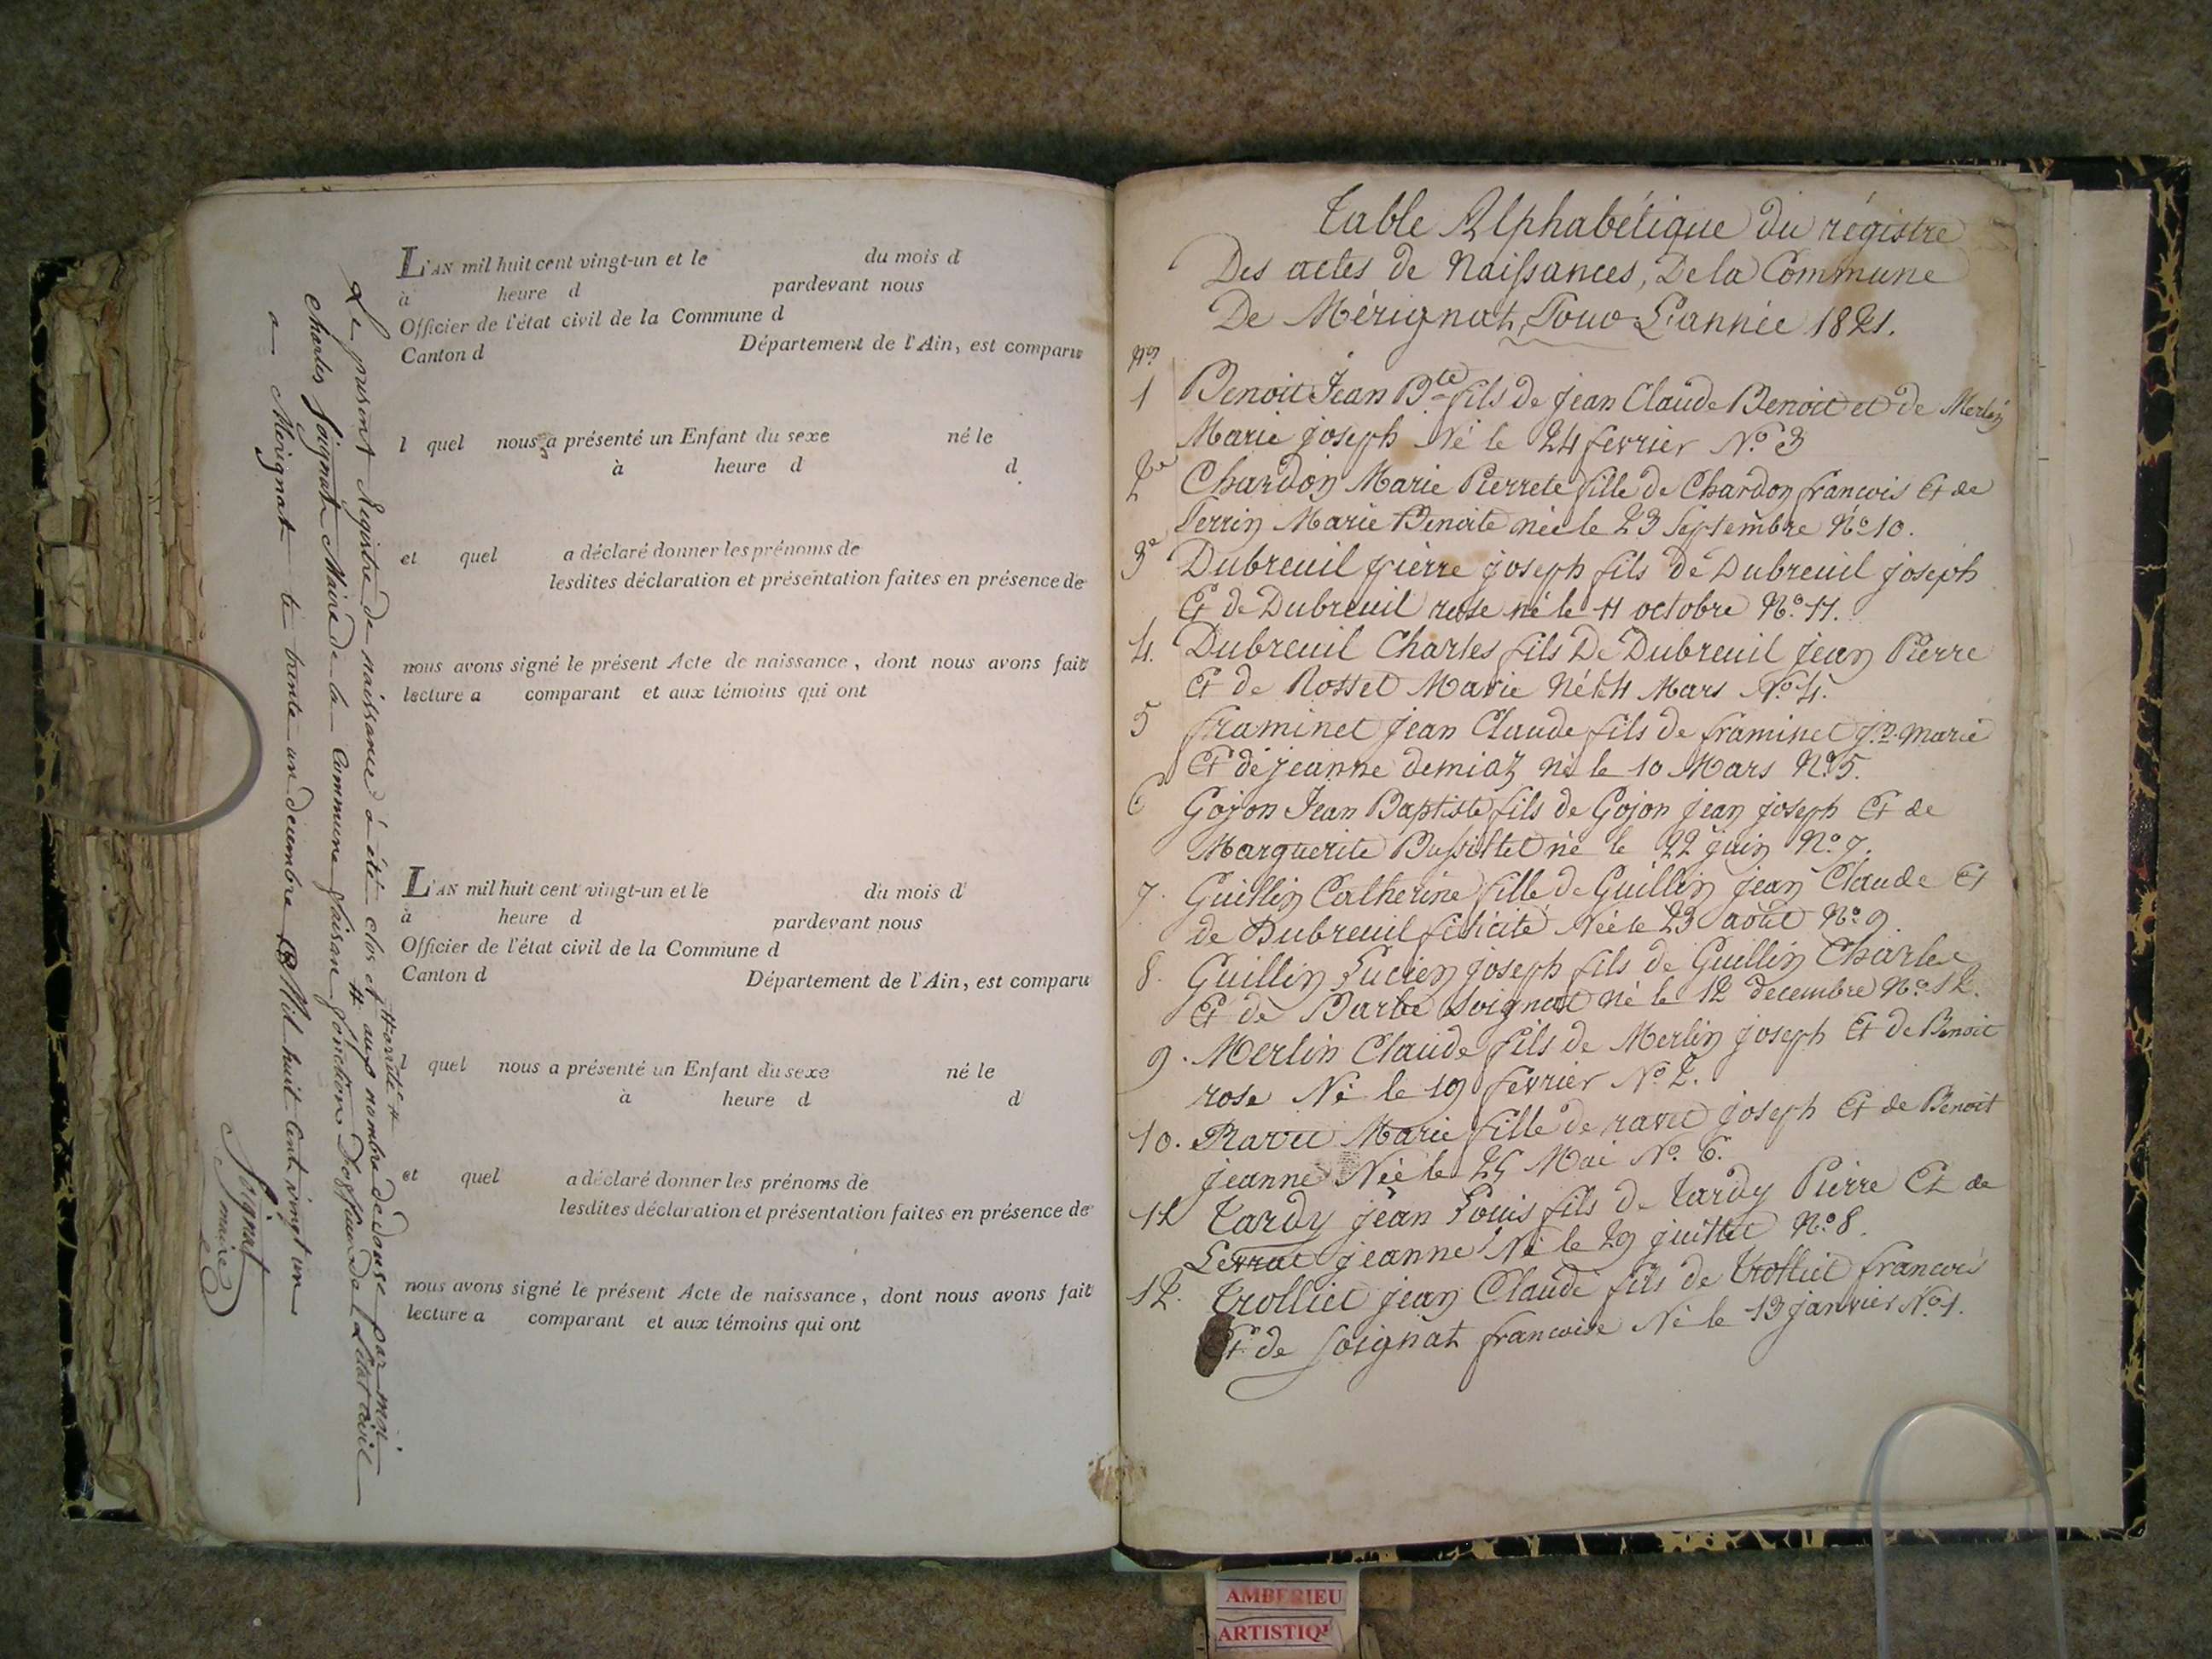 L'AN mil huit cent vingt-un et le du mois d
à heure d pardevant nous
Officier de l'état civil de la Commune d
Canton d Département de l'Ain, est comparu
l quel nous a présenté un Enfant du sexe né le
à heure d d
et quel a déclaré donner les prénoms de
lesdites déclaration et présentation faites en présence de
nous avons signé le présent Acte de naissance, dont nous avons fait
lecture a comparant et aux témoins qui ont
L'AN mil huit cent vingt-un et le du mois d
à heure d pardevant nous
Officier de l'état civil de la Commune d
Canton d Département de l'Ain, est comparu
l quel nous a présenté un Enfant du sexe né le
à heure d d
et quel a déclaré donner les prénoms de
lesdites déclaration et présentation faites en présence de
nous avons signé le présent Acte de naissance, dont nous avons fait
lecture a comparant et aux témoins qui ont
Le present Registre de naissance à été clos et # aux nombre de douse par moi
# arrêté #
Charles Soignat Maire de la Commune faisan fonction D'officier De L'état civil
a Merignat le trente un decembre Mil huit Cent vingt un
Soignat
maire
Table Alphabétique du régistre
Des actes de Naissances, De la Commune
De Mérignat, Pour L'année 1821.
Nos
1 Benoit Jean Bte fils de jean Claude Benoit et de Merlin
Marie joseph Né le 24 fevrier No 3
2e Chardon Marie Pierrete fille de Chardon francois Et de
Perrin Marie Benoite née le 23 Septembre No 10.
3e Dubreuil pierre joseph fils de Dubreuil joseph
Et de Dubreuil rose né le 11 octobre No 11.
4. Dubreuil Charles fils De Dubreuil jean Pierre
Et de Rosset Marie Né le 4 Mars No 4.
5 framinet jean Claude fils de framinet jn. marie
Et de jeanne demiaz né le 10 Mars No 5.
6 Gojon Jean Baptiste fils de Gojon jean joseph Et de
Marguerite Bussillet né le 22 juin No 7.
7. Guillin Catherine fille de Guillin jean Claude Et
de Dubreuil félicité Née le 23 août No 9
8. Guillin Lucien joseph fils de Guillin Charles
Et de Barbe Soignat né le 12 decembre No 12.
9. Merlin Claude fils de Merlin joseph Et de Benoit
rose Né le 19 fevrier No 2.
10. Ravet Marie fille de ravet joseph Et de Benoit
jeanne Née le 25 Mai No 6.
11 Tardy jean Louis fils de tardy Pierre Et de
Levrat jeanne Né le 29 juillet No 8.
12. trolliet jean Claude fils de trolliet francois
Et de Soignat francoise Né le 13 janvier No 1.
AMBERIEU
ARTISTIQ